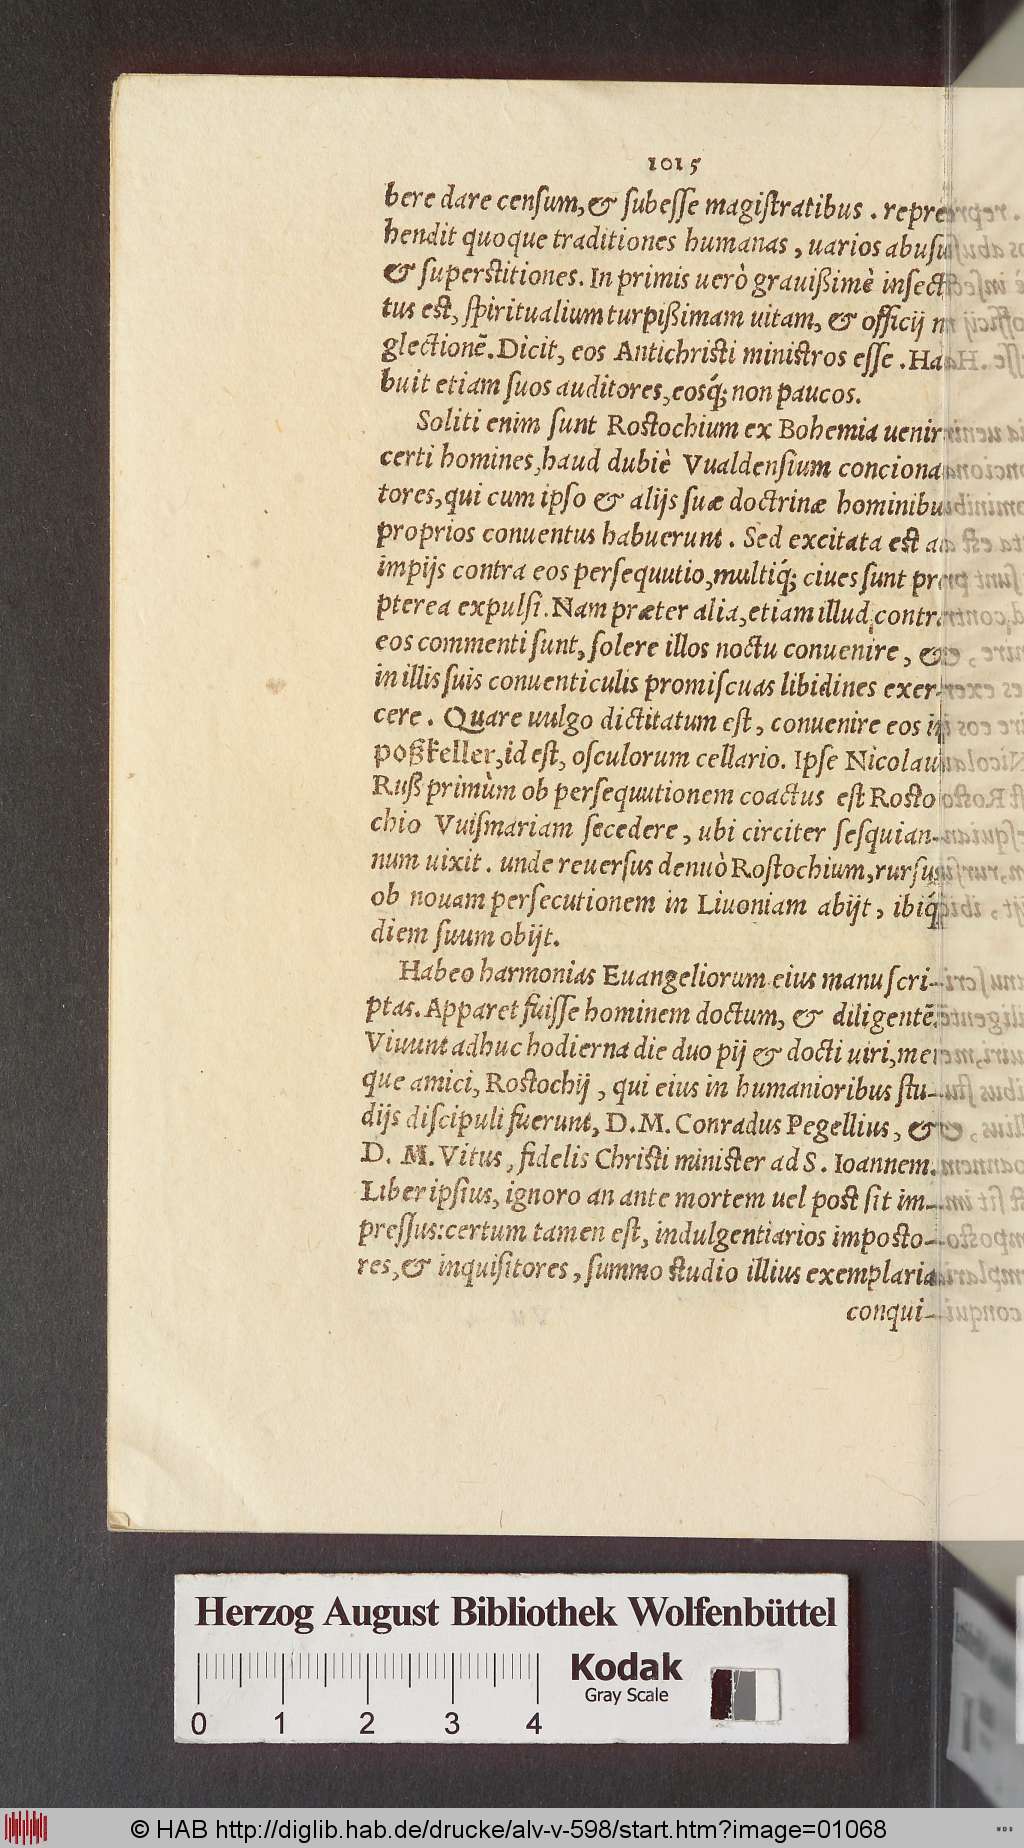 1015
bere dare censum, & subesse magistratibus. repre
hendit quoque traditiones humanas, uarios abusu
& superstitiones. In primis uerò grauißimè insect
tus est, spiritualium turpißimam uitam, & officij n
glectionẽ. Dicit, eos Antichristi ministros esse. Ha
buit etiam suos auditores, eosq́; non paucos.
Soliti enim sunt Rostochium ex Bohemia uenir
certi homines, haud dubiè Vualdensium conciona
tores, qui cum ipso & alijs suæ doctrinæ hominibu
proprios conuentus habuerunt. Sed excitata est a
impijs contra eos persequutio, multiq́; ciues sunt pr
pterea expulsi. Nam præter alia, etiam illud contr
eos commenti sunt, solere illos noctu conuenire, &
in illis suis conuenticulis promiscuas libidines exer-
cere. Quare uulgo dictitatum est, conuenire eos i
poßkeller, id est, osculorum cellario. Ipse Nicolau
Ruß primùm ob persequutionem coactus est Rosto
chio Vuismariam secedere, ubi circiter sesquian-
num uixit. unde reuersus denuò Rostochium, rursu
ob nouam persecutionem in Liuoniam abijt, ibiq́
diem suum obijt.
Habeo harmonias Euangeliorum eius manu scri-
ptas. Apparet fuisse hominem doctum, & diligentẽ.
Viuunt adhuc hodierna die duo pij & docti uiri, me
que amici, Rostochij, qui eius in humanioribus stu-
dijs discipuli fuerunt, D. M. Conradus Pegellius, &
D. M. Vitus, fidelis Christi minister ad S. Ioannem.
Liber ipsius, ignoro an ante mortem uel post sit im-
pressus: certum tamen est, indulgentiarios imposto-
res, & inquisitores, summo studio illius exemplaria
conqui-
Herzog August Bibliothek Wolfenbüttel
Kodak
Gray Scale
0 1 2 3 4
© HAB http://diglib.hab.de/drucke/alv-v-598/start.htm?image=01068